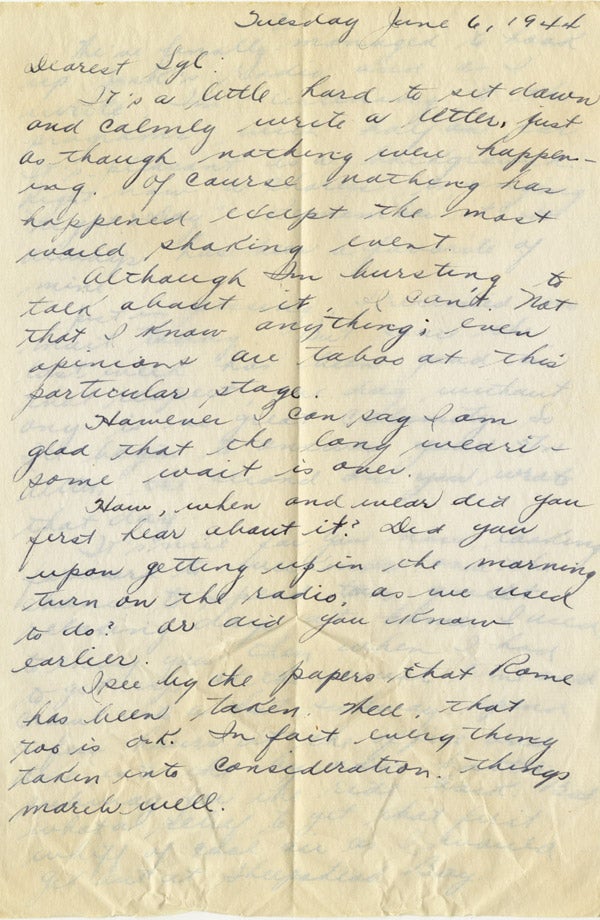 Tuesday June 6, 1944
Dearest Syl:
It's a little hard to sit down
and calmly write a letter, just
as though nothing were happen-
ing. Of course nothing has
happened except the most
world shaking event.
Although I'm bursting to
talk about it, I can't. Not
that I know anything; even
opinions are taboo at this
particular stage.
However I can say I am
glad that the long weari-
some wait is over.
How, when and wear did you
first hear about it? Did you
upon getting up in the morning
turn on the radio, as we used
to do? Or did you know
earlier.
I see by the papers that Rome
has been taken. Well, that
too is O.K. In fact everything
taken into consideration, things
march well.